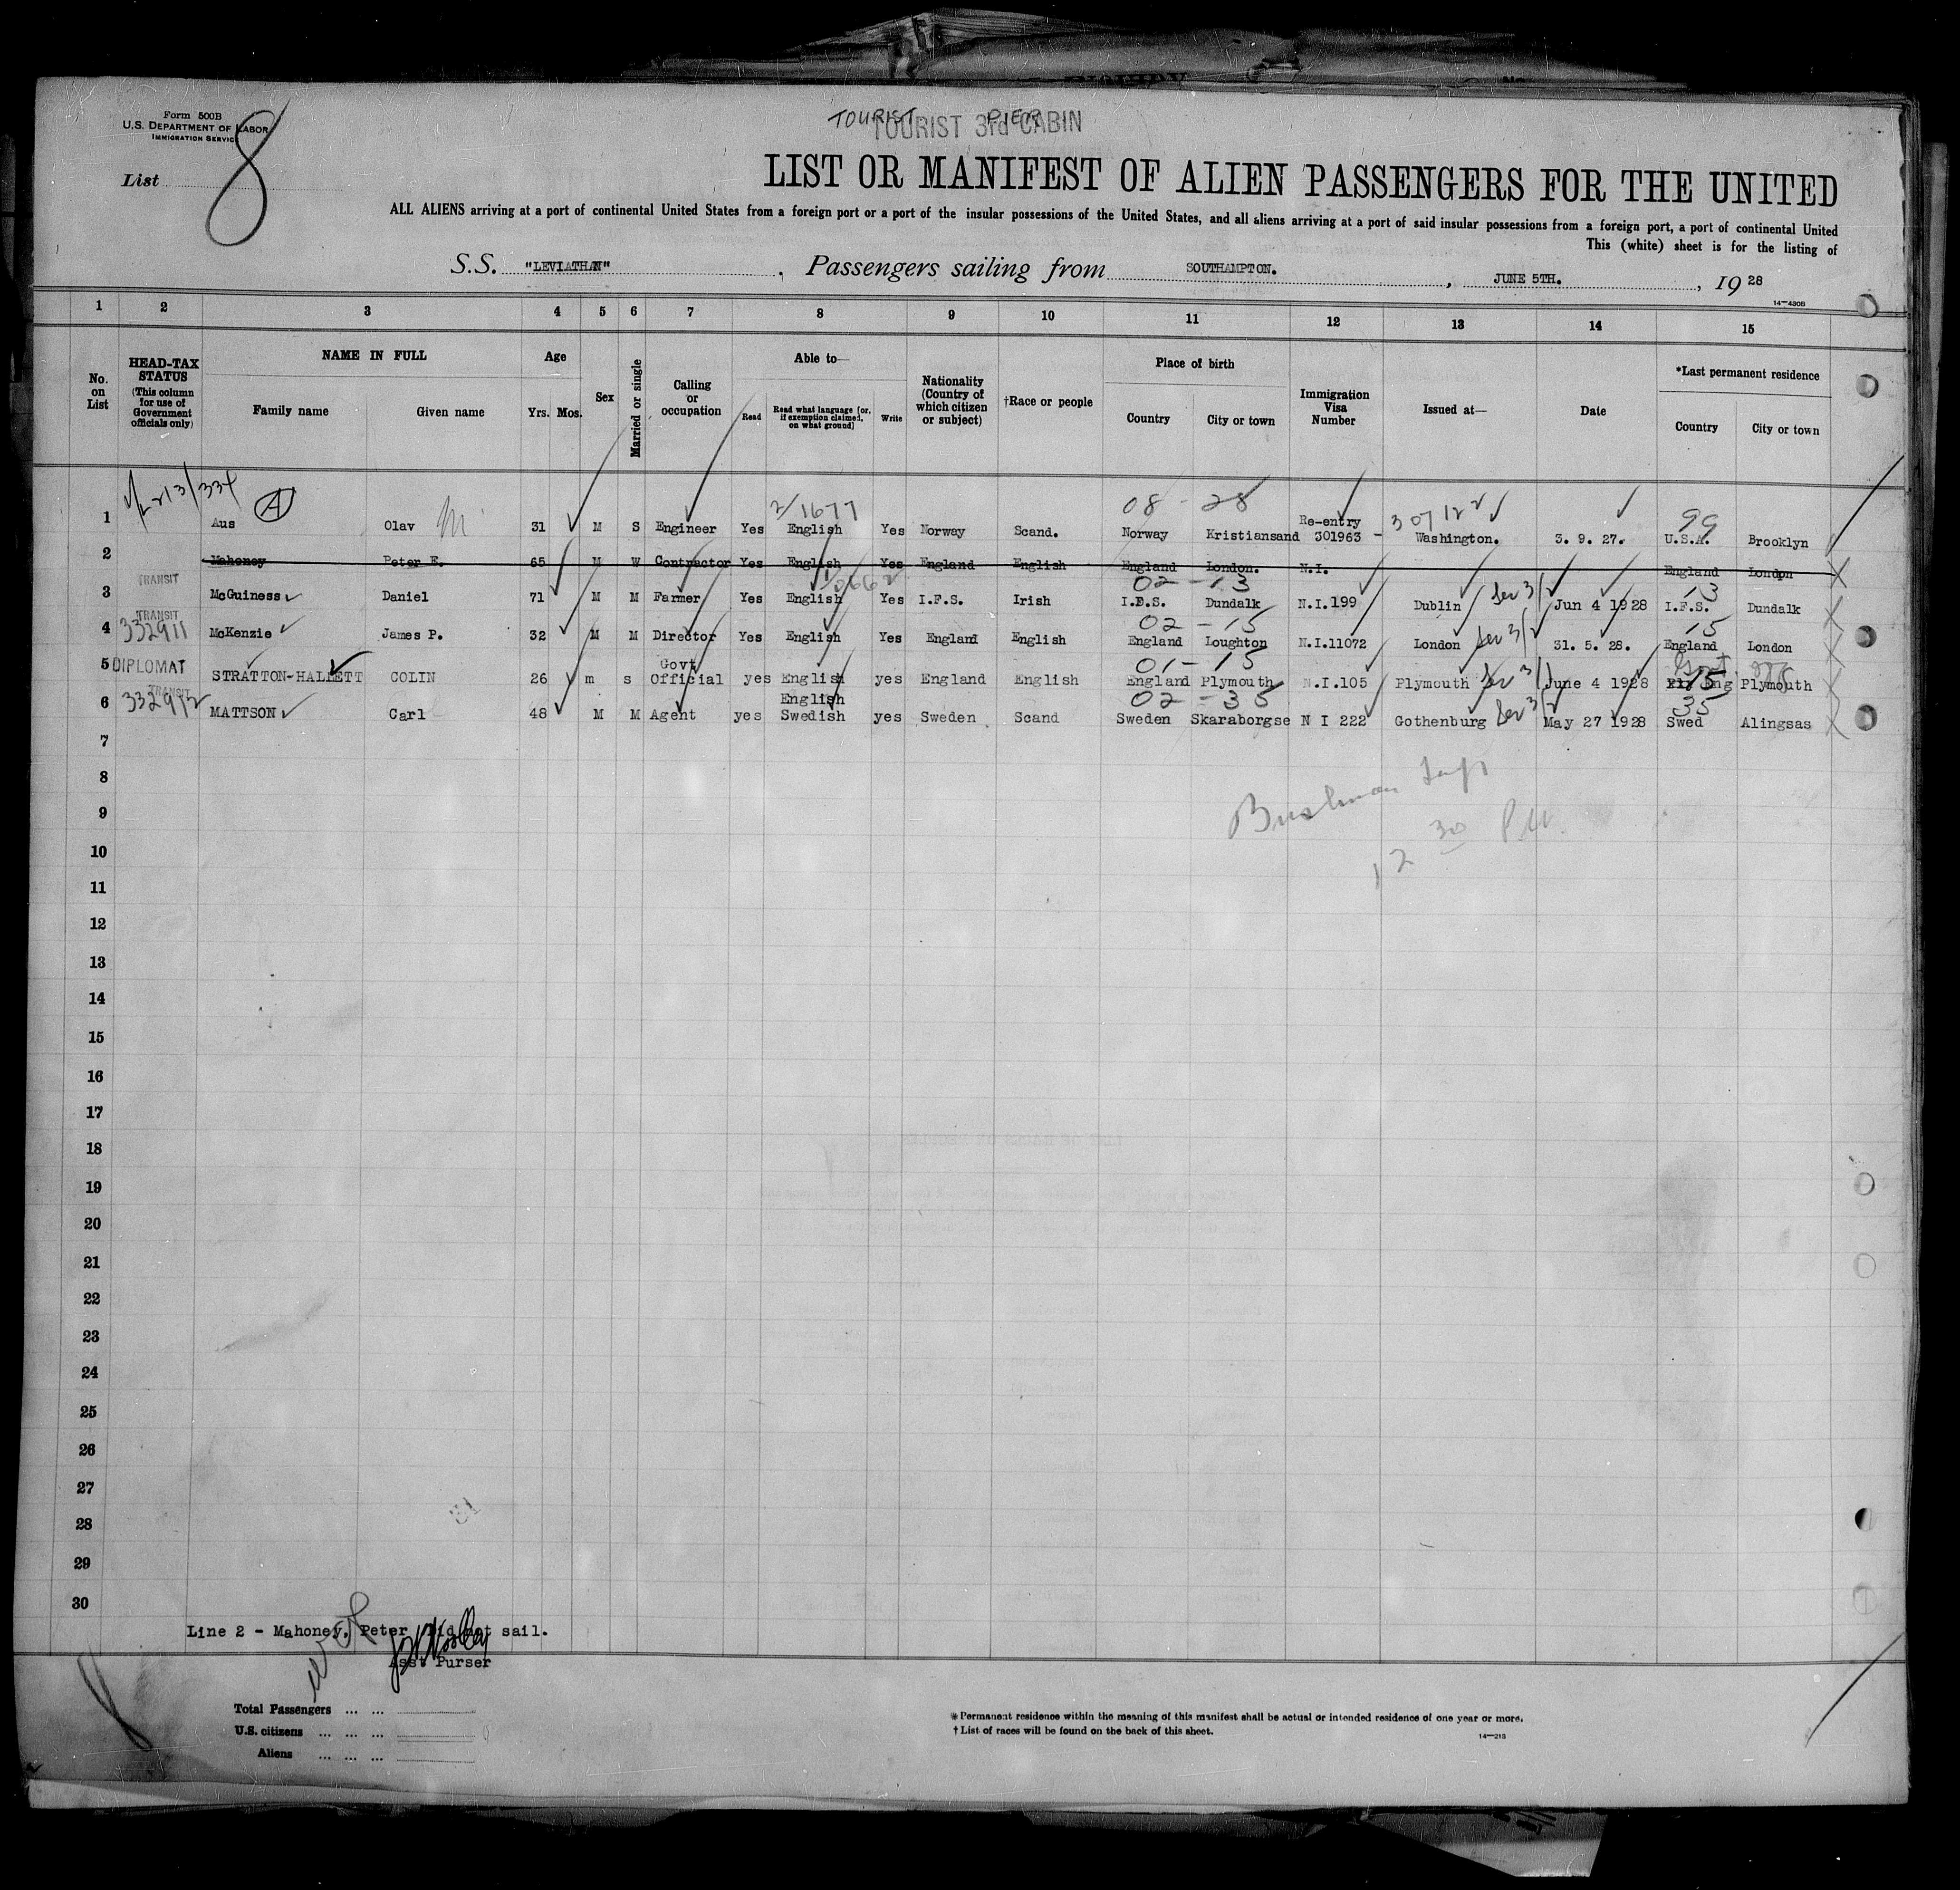 Form 500B
U.S. DEPARTMENT OF LABOR
IMMIGRATION SERVICE
TOURIST PIER
TOURIST 3rd CABIN
List 8
LIST OR MANIFEST OF ALIEN PASSENGERS FOR THE UNITED
ALL ALIENS arriving at a port of continental United States from a foreign port or a port of the insular possessions of the United States, and all aliens arriving at a port of said insular possessions from a foreign port, a port of continental United
This (white) sheet is for the listing of
S.S. "LEVIATHAN" . Passengers sailing from SOUTHAMPTON. , JUNE 5TH. , 19 28
14—4306
1 2 3 4 5 6 7 8 9 10 11 12 13 14 15
No. on List
HEAD-TAX STATUS (This column for use of Government officials only)
NAME IN FULL
Family name Given name
Age
Yrs. Mos.
Sex
Married or single
Calling or occupation
Able to—
Read Read what language [or, if exemption claimed, on what ground] Write
Nationality (Country of which citizen or subject)
†Race or people
Place of birth
Country City or town
Immigration Visa Number
Issued at—
Date
*Last permanent residence
Country City or town
2/1677 08 - 28 99
1 Aus Olav 31 M S Engineer Yes English Yes Norway Scand. Norway Kristiansand Re-entry 301963 - Washington. 3. 9. 27. U.S.A. Brooklyn
2 Mahoney Peter E. 65 M W Contractor Yes English Yes England English England London. N.I. England London
TRANSIT 02 - 13 13
3 McGuiness Daniel 71 M M Farmer Yes English Yes I.F.S. Irish I.F.S. Dundalk N.I.199 Dublin Jun 4 1928 I.F.S. Dundalk
TRANSIT 332911 02 - 15 15
4 McKenzie James P. 32 M M Director Yes English Yes England English England Loughton N.I.11072 London 31. 5. 28. England London
DIPLOMAT 01 - 15 15
5 STRATTON-HALLETT COLIN 26 m s Govt Official yes English yes England English England Plymouth N.I.105 Plymouth June 4 1928 Eng Plymouth
TRANSIT 332912 02 - 35 35
6 MATTSON Carl 48 M M Agent yes English Swedish yes Sweden Scand Sweden Skaraborgse N I 222 Gothenburg May 27 1928 Swed Alingsas
7
8
9
12 30 P.M.
10
11
12
13
14
15
16
17
18
19
20
21
22
23
24
25
26
27
28
29
30
Line 2 - Mahoney, Peter Did not sail.
Asst Purser
Total Passengers ... ...
U.S. citizens ... ... ...
Aliens ... ... ...
*Permanent residence within the meaning of this manifest shall be actual or intended residence of one year or more.
†List of races will be found on the back of this sheet.
14—213